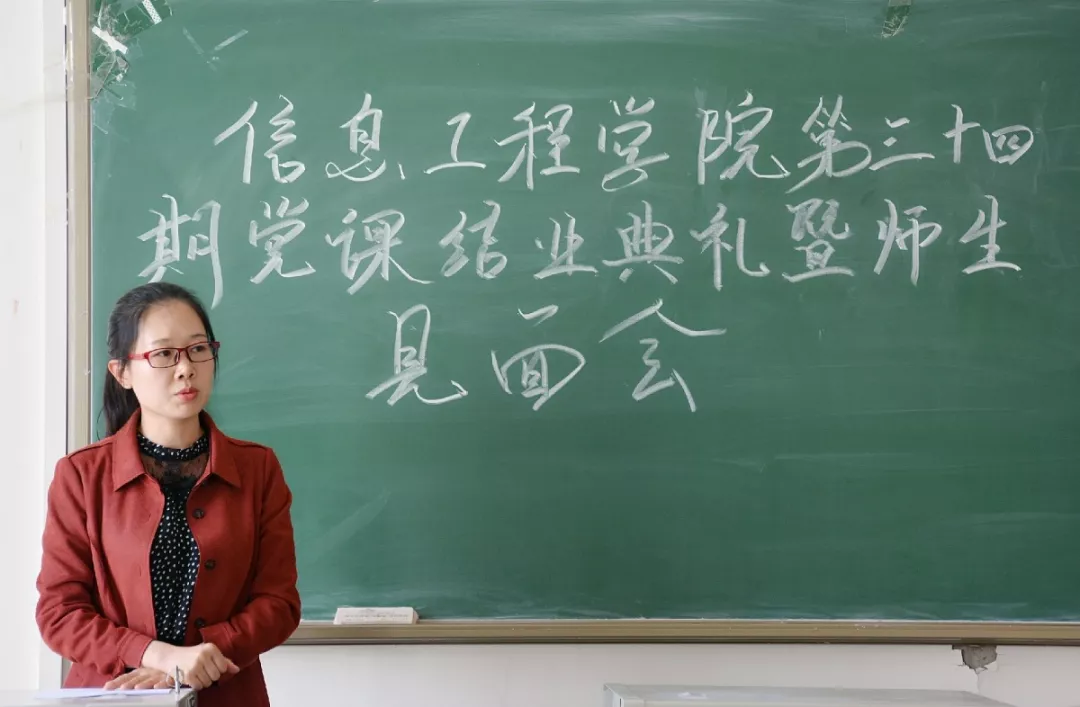 信息工程学院第三十四
期党课结业典礼暨师生
见面会